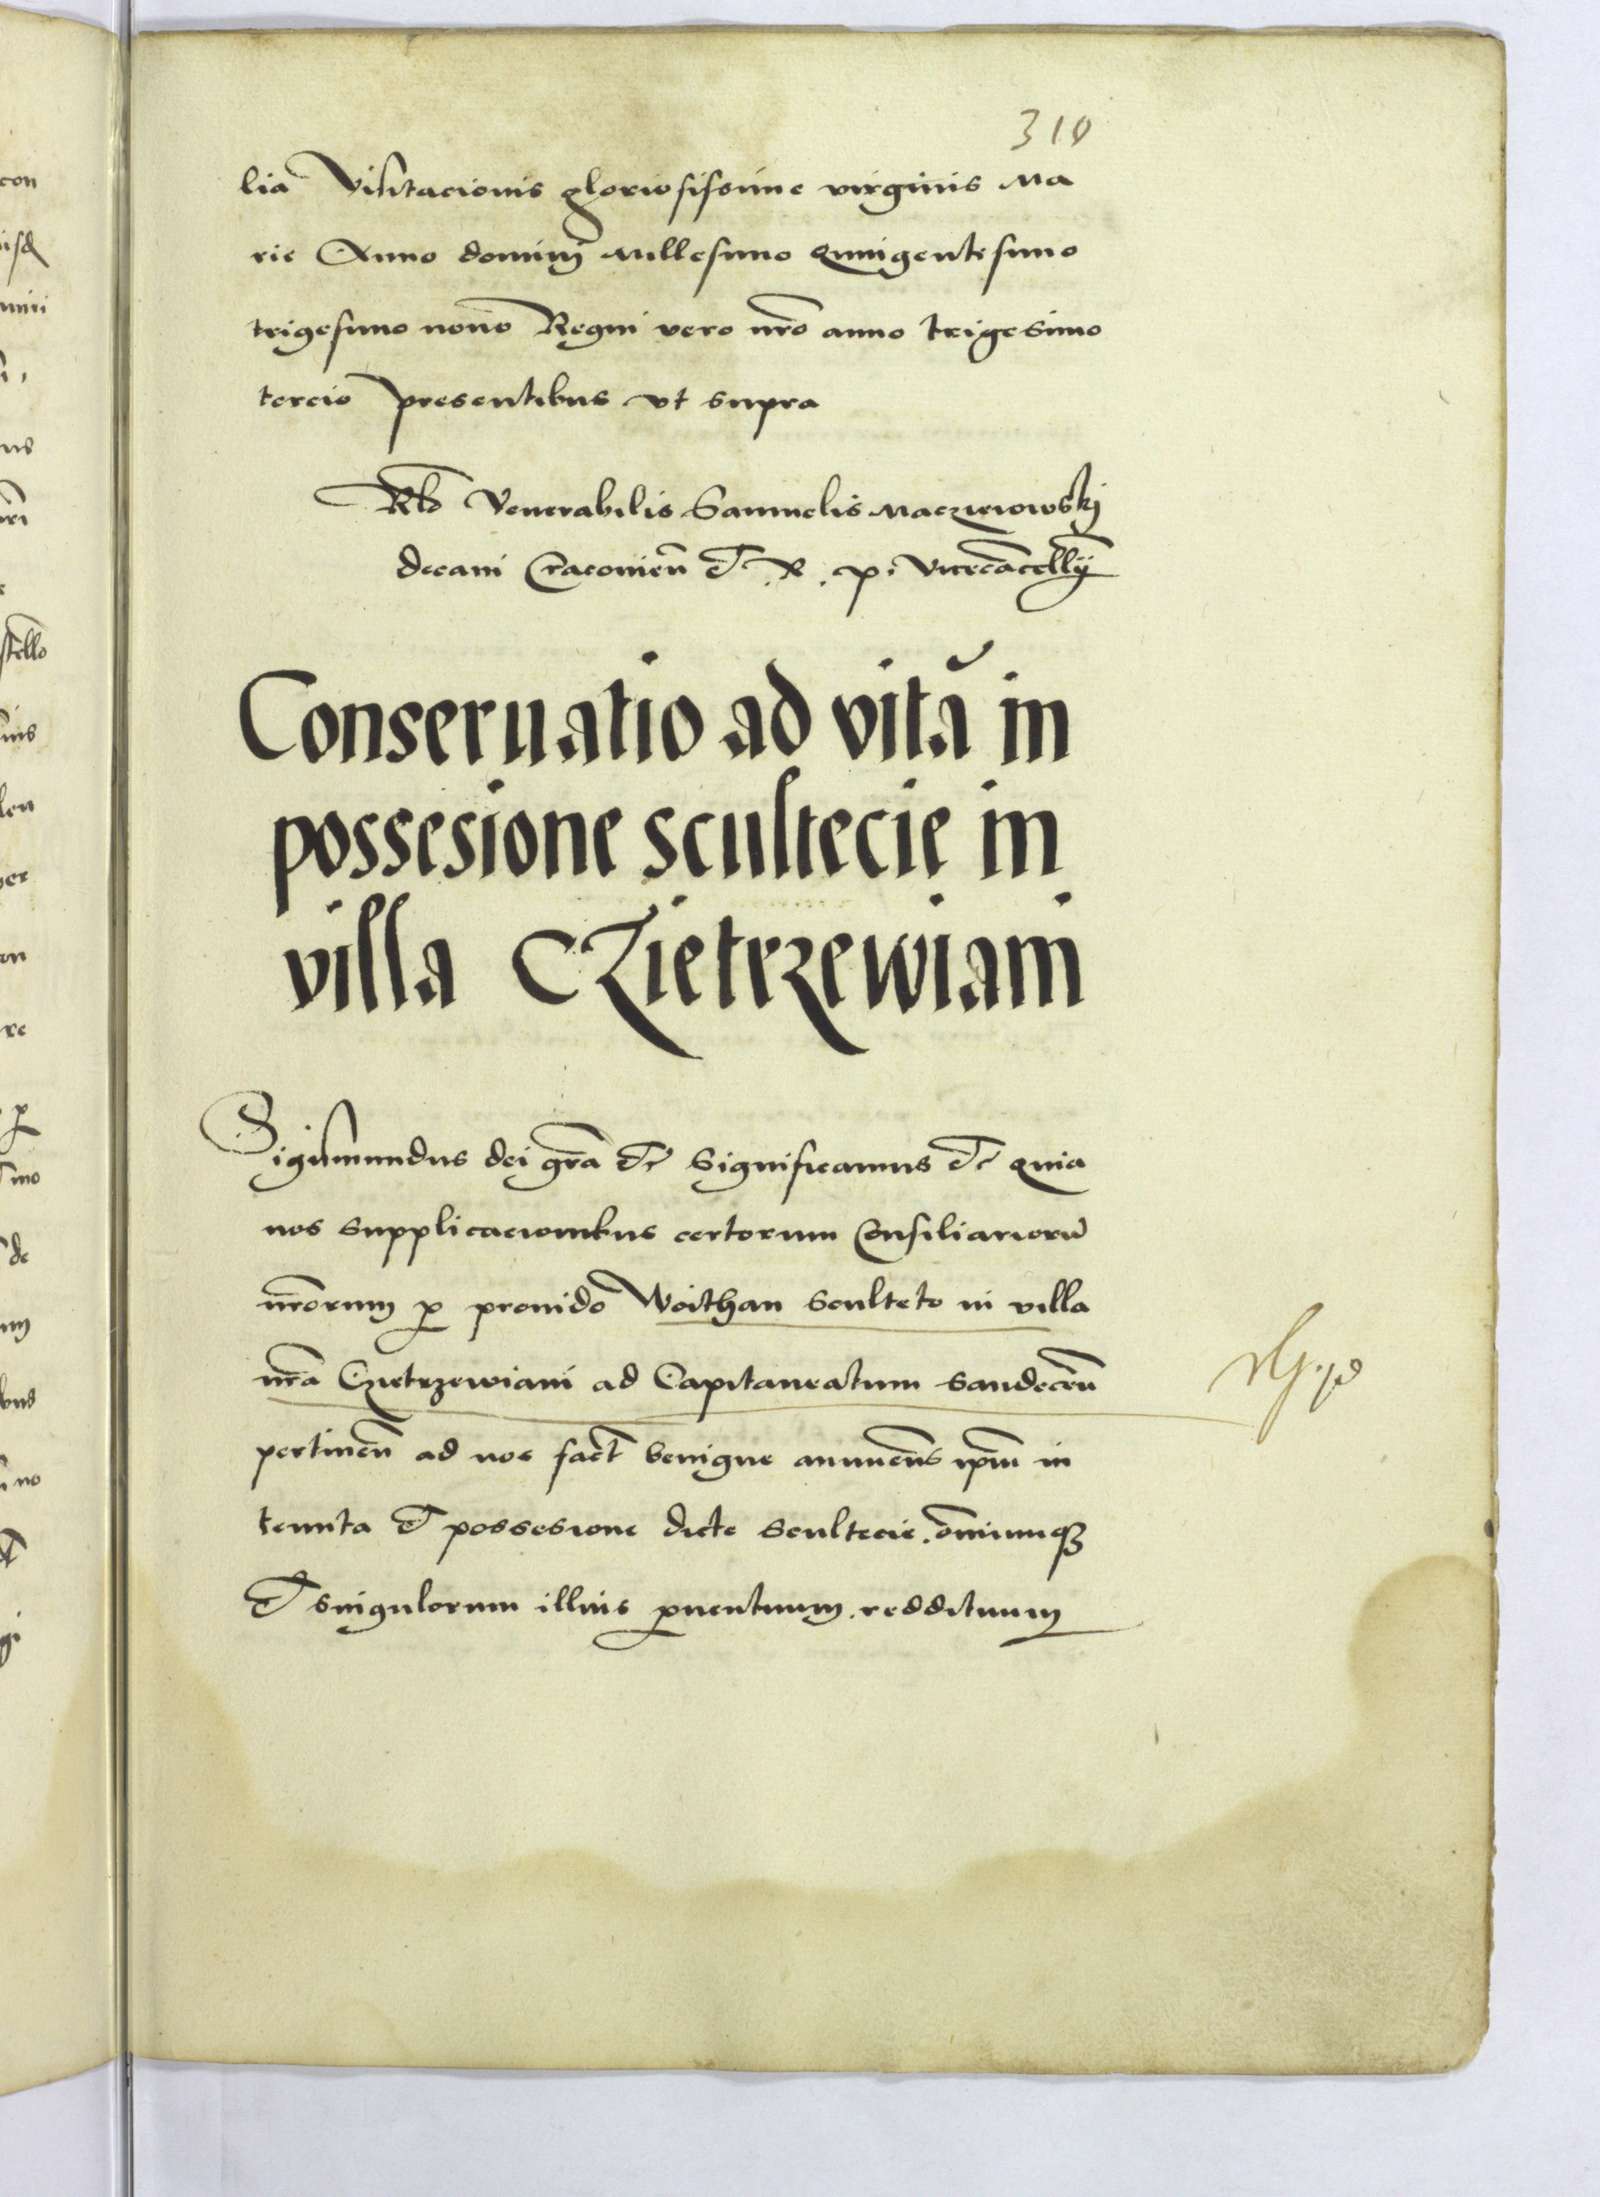 310
lia Visitacionis gloriosissime virginis Ma
rie Anno domini Millesimo quingentesimo
trigesimo nono Regni vero nrō anno trigesimo
tercio presentibus vt supra
Venerabilis Samuelis Maczieiowskj
decani Cracovien̄ et R. p. Vicecācellȳ
Conseruatio ad vitā in
possesione scultecie in
villa CZietrzewiani
Sigismundus dei grā etc Significamus etc quia
nos supplicacionibus certorum Consiliariorū
nrōrum p prouido Woithan Sculteto in villa
nrā Czietrzewiani ad Capitaneatum Sandecēn
pertineñ ad nos fact̄ benigne annuen̄s ip̄m in
tenuta et possesione dicte Scultecie om̄iumq3
et singulorum illius ꝓuentuum reddituum